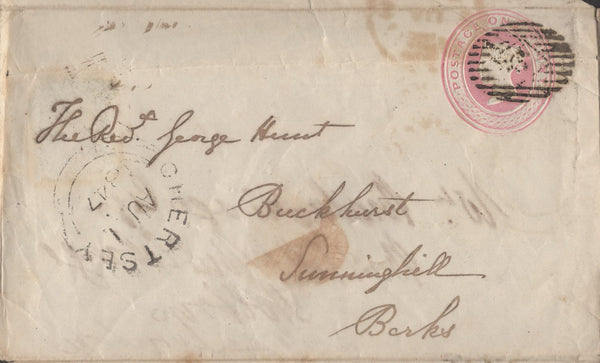 POSTAGE ON
The Revd. George Hunt
Buckhurst
Sunninghill
Berks
CHERTSEY
AU 1